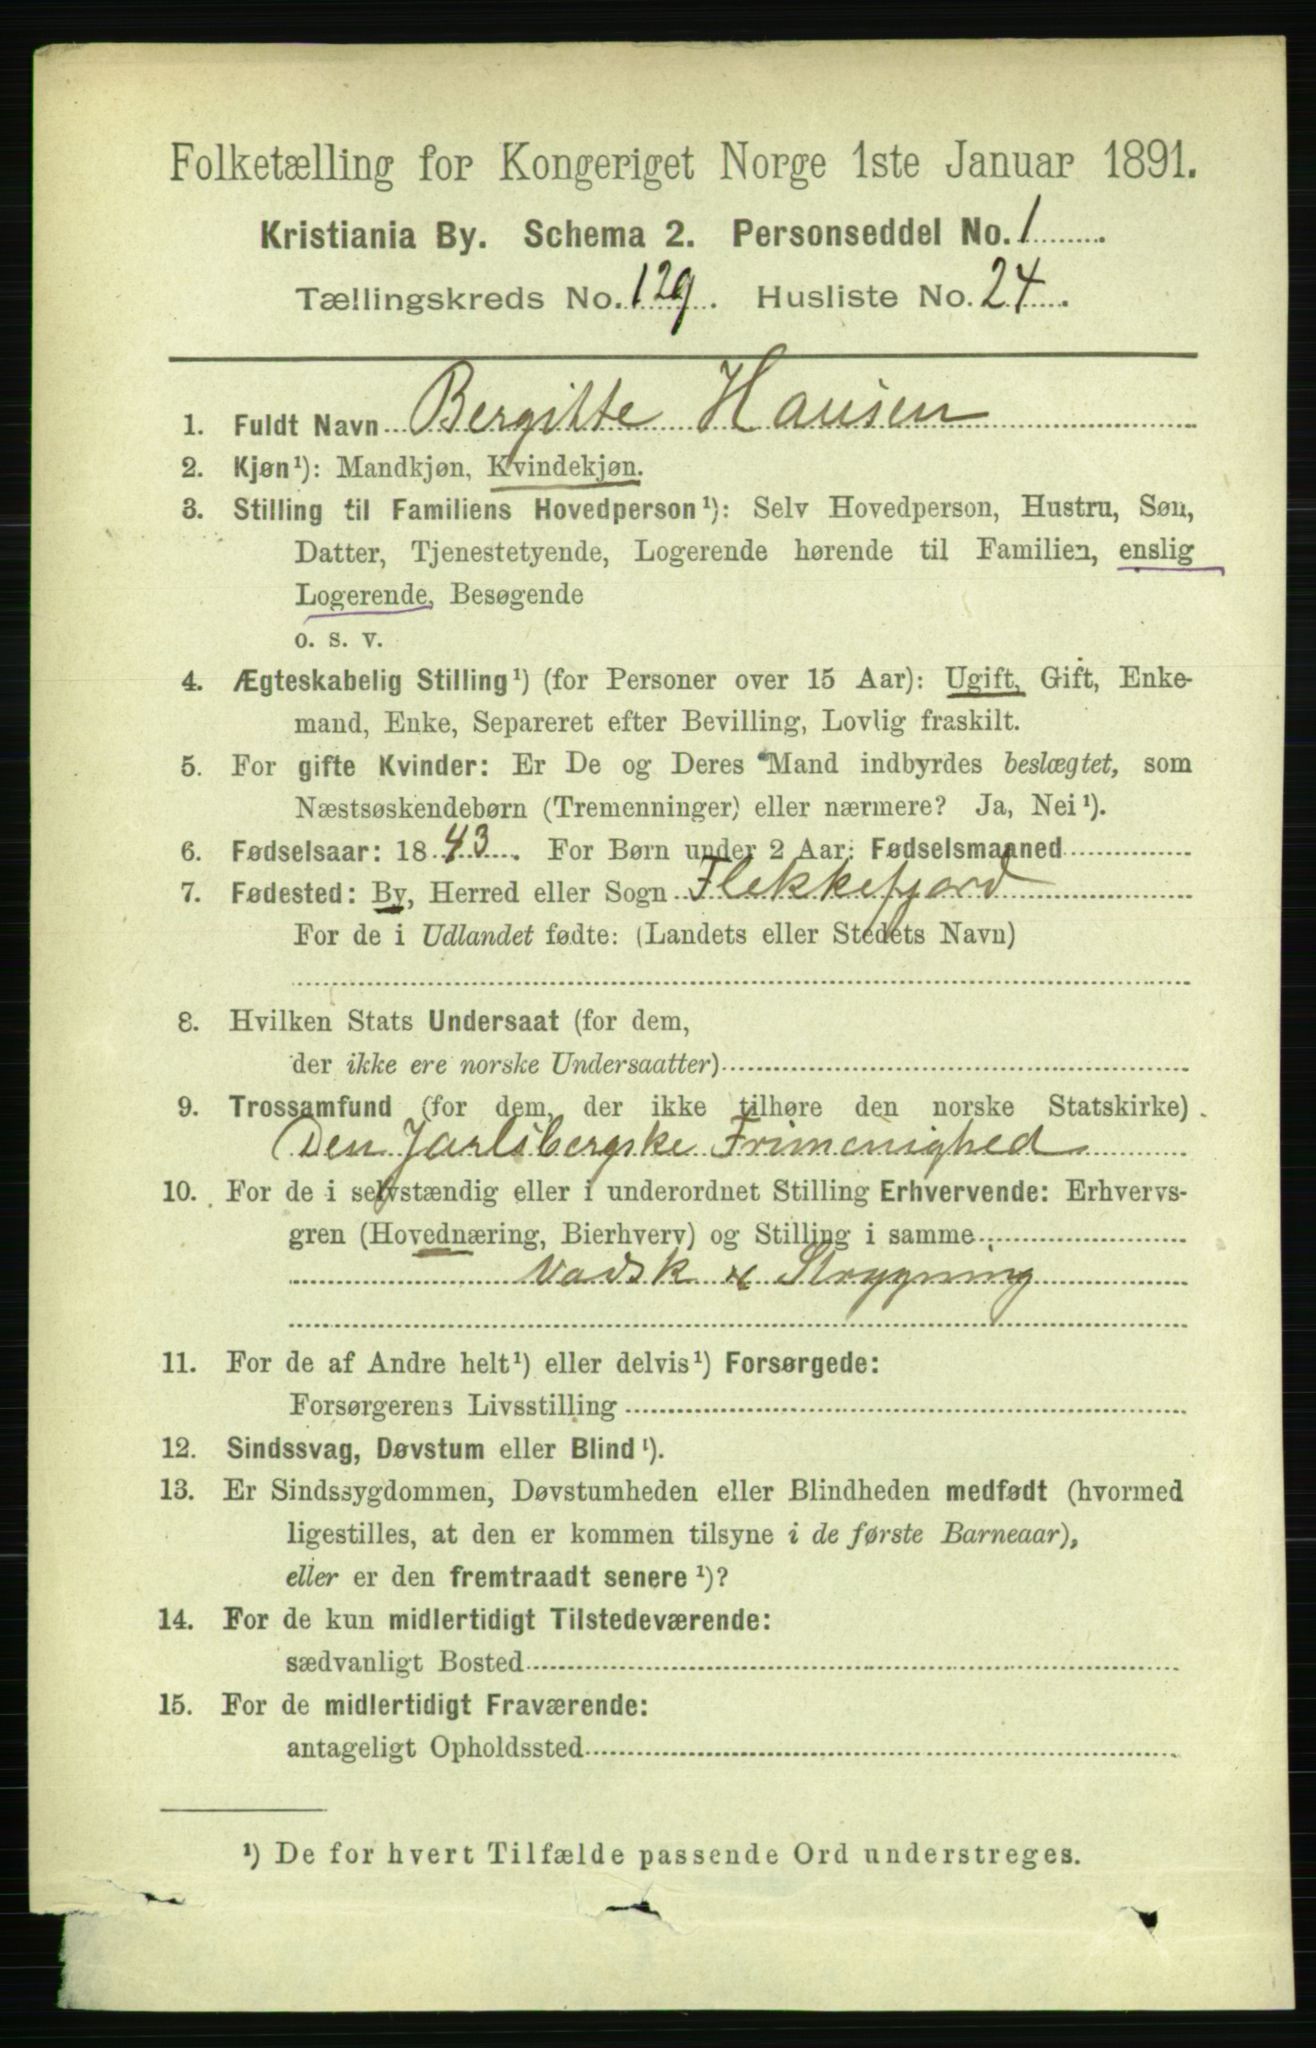 Folketælling for Kongeriget Norge 1ste Januar 1891.
Kristiania By. Schema 2. Personseddel No. 1
Tællingskreds No. 129. Husliste No. 24.
1. Fuldt Navn Bergitte Hansen
2. Kjøn¹): Mandkjøn, Kvindekjøn.
3. Stilling til Familiens Hovedperson¹): Selv Hovedperson, Hustru, Søn,
Datter, Tjenestetyende, Logerende hørende til Familien, enslig
Logerende, Besøgende
o. s. v.
4. Ægteskabelig Stilling¹) (for Personer over 15 Aar): Ugift, Gift, Enke-
mand, Enke, Separeret efter Bevilling, Lovlig fraskilt.
5. For gifte Kvinder: Er De og Deres Mand indbyrdes beslægtet, som
Næstsøskendebørn (Tremenninger) eller nærmere? Ja, Nei¹).
6. Fødselsaar: 1843. For Børn under 2 Aar: Fødselsmaaned
7. Fødested: By, Herred eller Sogn Flekkefjord
For de i Udlandet fødte: (Landets eller Stedets Navn)
8. Hvilken Stats Undersaat (for dem,
der ikke ere norske Undersaatter)
9. Trossamfund (for dem, der ikke tilhøre den norske Statskirke)
Den Jarlsbergske Frimenighed
10. For de i selvstændig eller i underordnet Stilling Erhvervende: Erhvervs-
gren (Hovednæring, Bierhverv) og Stilling i samme
Vadsk & Strygning
11. For de af Andre helt¹) eller delvis¹) Forsørgede:
Forsørgerens Livsstilling
12. Sindssvag, Døvstum eller Blind¹).
13. Er Sindssygdommen, Døvstumheden eller Blindheden medfødt (hvormed
ligestilles, at den er kommen tilsyne i de første Barneaar),
eller er den fremtraadt senere¹)?
14. For de kun midlertidigt Tilstedeværende:
sædvanligt Bosted
15. For de midlertidigt Fraværende:
antageligt Opholdssted
¹) De for hvert Tilfælde passende Ord understreges.